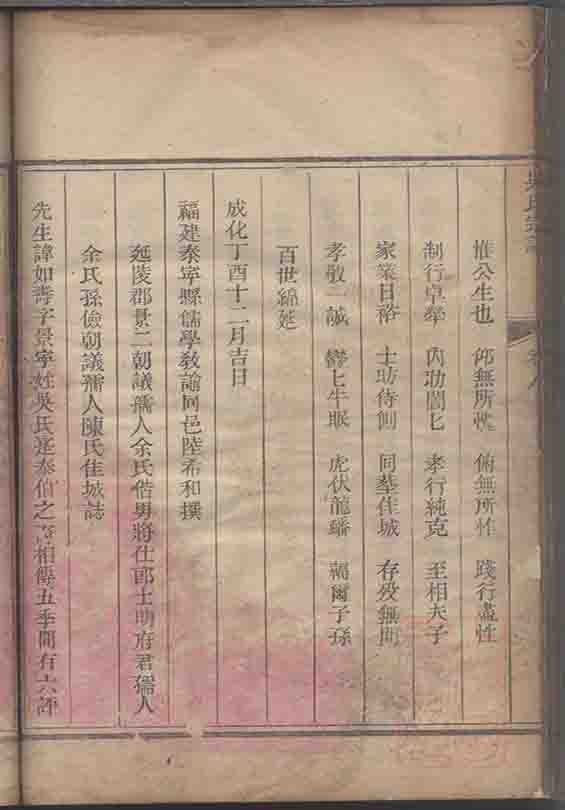 吳氏宗譜
卷八
惟公生也 仰無所愧 俯無所怍 踐行盡性
制行卓犖 內助誾匕 孝行純克 至相夫子
家業日裕 士昉侍側 同塟佳城 存殁無間
孝敬一誠 鬱匕牛眠 虎伏龍蟠 蔼爾子孫
百世綿延
成化丁酉十二月吉日
福建泰寜縣儒學教諭同邑陸希和撰
延陵郡景二朝議孺人余氏偕男將仕郎士明府君孺人
余氏孫儉朝議孺人陳氏佳城誌
先生諱如壽字景寧姓吳氏迺泰伯之裔相傳五季間有六評